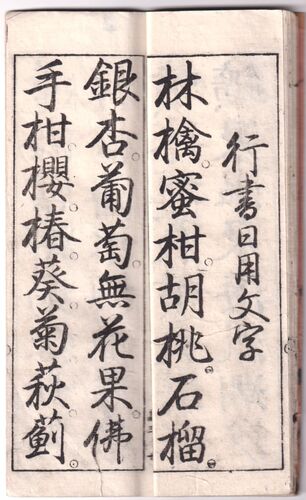 行書日用文字
林檎蜜柑胡桃石榴
銀杏葡萄無花果佛
手柑櫻椿葵菊萩薊